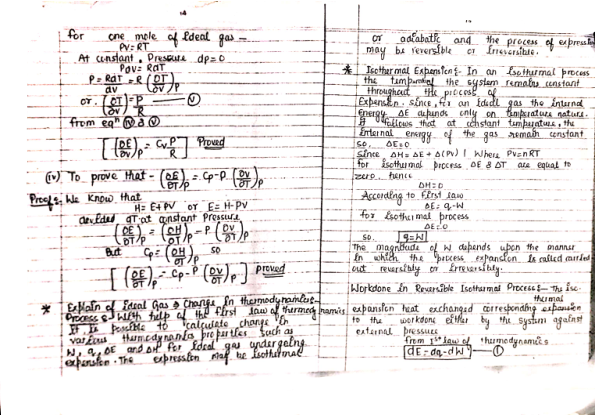 for one mole of Ideal gas —
PV = RT
At constant, Pressure dp=0
Pdv = RdT
P = RdT/dv = R (∂T/∂v)p
or. (∂T/∂v)p = P/R — (v)
from eqⁿ (iv) & (v)
[(∂E/∂v)p = Cv.P/R] Proved
(iv) To prove that - (∂E/∂T)p = Cp - P (∂v/∂T)p
Proof:- We know that
H = E+PV or E = H-PV
devided dT at constant Pressure
(∂E/∂T)p = (∂H/∂T)p - P (∂v/∂T)p
But Cp = (∂H/∂T)p so
[(∂E/∂T)p = Cp - P (∂v/∂T)p] proved
* Explain of Ideal Gas → Change In thermodynamics
Process :- With help of the first law of thermodynamics
It is possible to calculate change In
various thermodynamics properties such as
W, q, ∆E and ∆H for Ideal gas undergoing
expension. The expression may be isothermal
or adiabatic and the process of expression
may be reversible or Irreversible.
* Isothermal Expension :- In an Isothermal process
the the system remains constant
throughout the process of
Expension. Since, for an Ideal gas the internal
Energy ∆E depends only on temperature nature.
It follows that at constant temperature, the
internal energy of the gas remain constant
so, ∆E=0
Since ∆H = ∆E + ∆(PV) | Where PV=nRT
for Isothermal process ∆E & ∆T are equal to
zero.. hence
∆H=0
According to first law
∆E = q-W
for isothermal process
∆E=0
so. [q=W]
The magnitude of W depends upon the manner
In which the process expansion Is called carried
out reversibly or Irreversibly.
Workdone In Reversible Isothermal Process :- The Iso-
thermal
expansion heat exchanged corresponding expansion
to the workdone either by the system against
external pressure
from 1st law of thermodynamics
[dE = dq-dW] — (1)